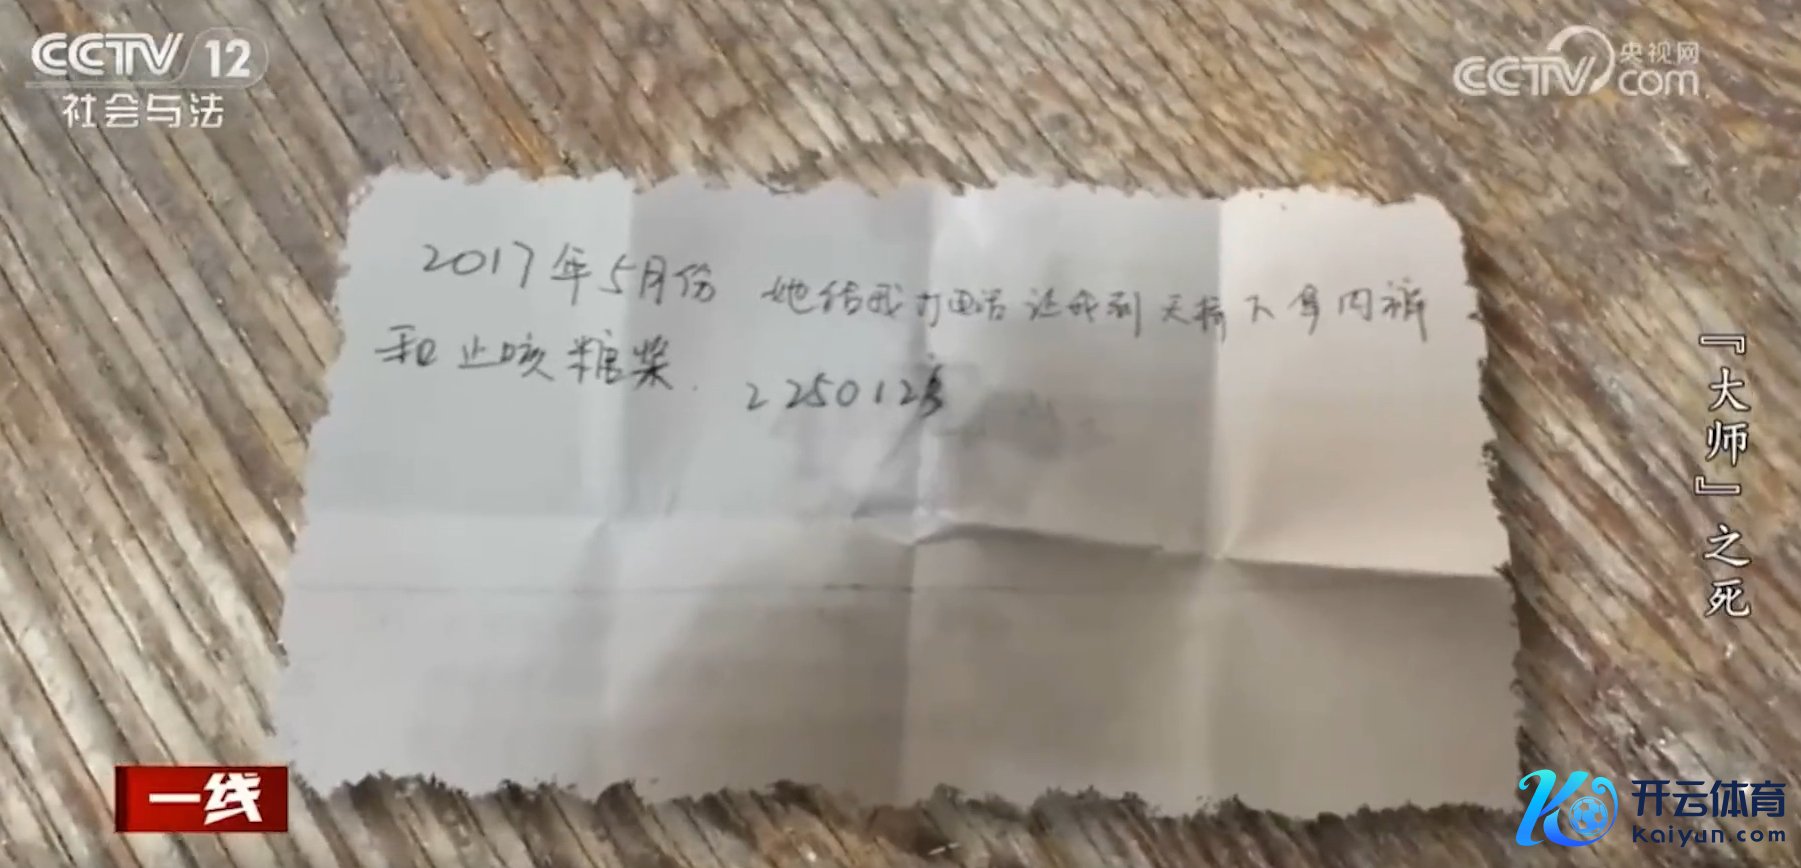 CCTV 12
社会与法
央视网
CCTV.com
2017年5月份 她给我打电话让我到天桥下拿内裤
和止咳糖浆.
『大师』之死
一线
开云体育
Kaiyun.com